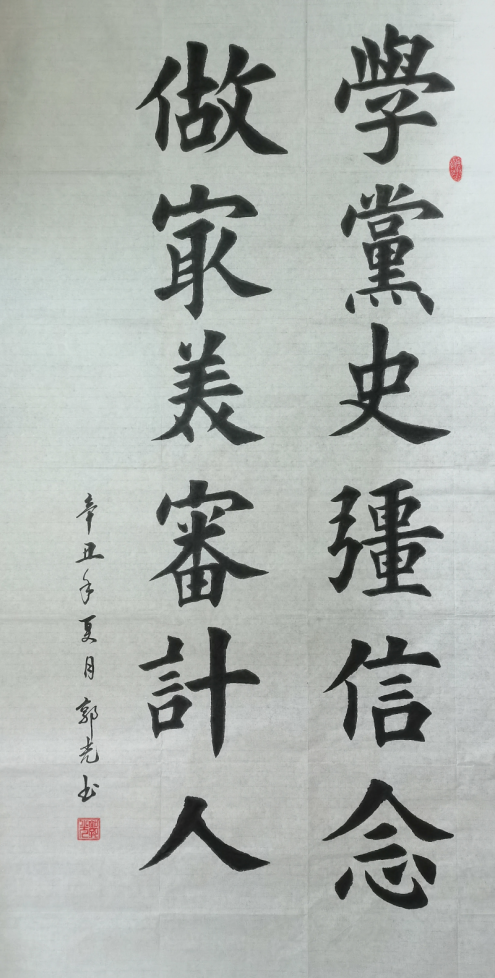 學黨史彊信念
做冣美審計人
辛丑年夏月郭光书